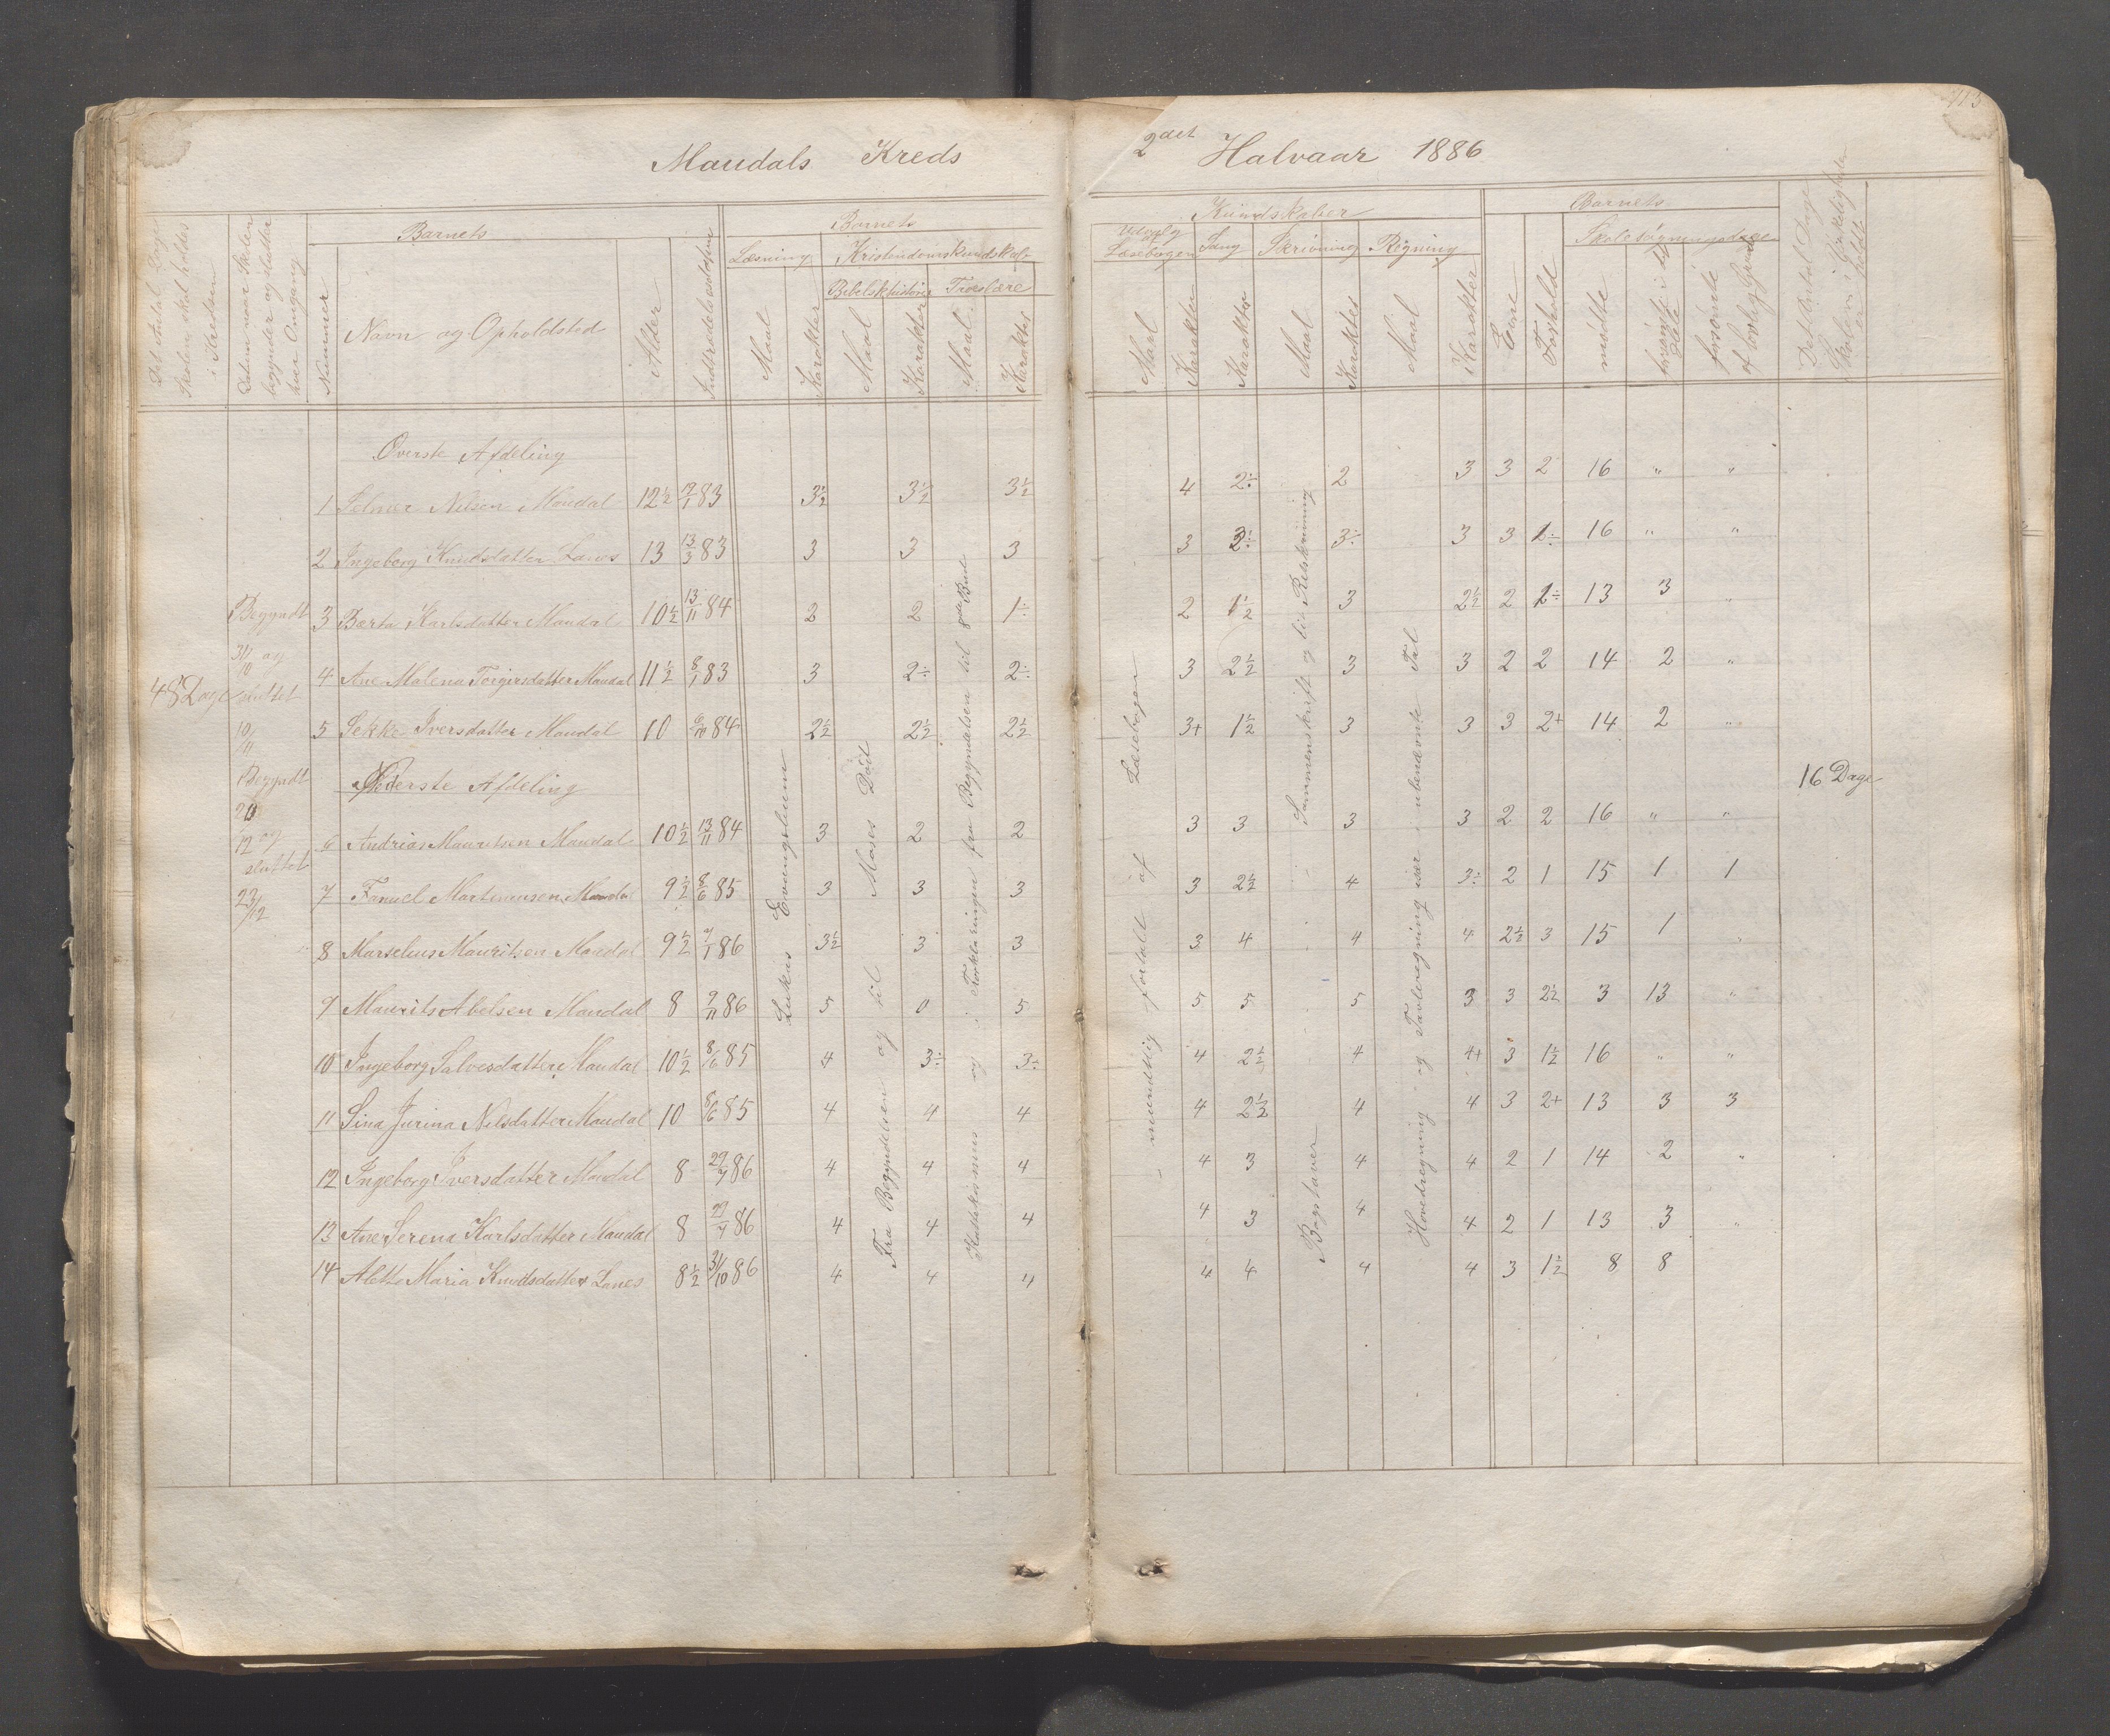 113
Maudals Kreds
2det Halvaar 1886
Det Antal Dage Skolen skal holdes i Kredsen
Datum naar Skolen begynder og slutter hver Omgang
Nummer
Barnets
Navn og Opholdsted
Alder
Indtrædelsesdatum
Barnets
Læsning
Kristendomskundskab
Bibelshistorie
Troeslære
Maal
Karakter
Maal
Karakter
Maal
Karakter
Kundskaber
Udvalg af Læsebogen
Sang
Skrivning
Regning
Maal
Karakter
Karakter
Maal
Karakter
Maal
Karakter
Barnets
Evne
Forhold
Skolesøgningsdage
mødte
forsømte i det Hele
forsømte af lovlig Grund
Det Antal Dage Skolen i Virkeligheden er holdt
48 Dage
Begyndt
31/10 og
sluttet
10/11
Begyndt
20
12 og
sluttet
23/12
Øverste Afdeling
1 Selmer Nilsen Maudal 12½ 12/1 83 3½ 3½ 3½ 4 2÷ 2 3 3 2 16 " "
2 Ingeborg Knudsdatter Lanes 13 13/3 83 3 3 3 3 2÷ 3÷ 3 3 1÷ 16 " "
3 Berta Karlsdatter Maudal 10½ 13/11 84 2 2 1÷ 2 1½ 3 2½ 2 1÷ 13 3 "
4 Ane Malena Torgersdatter Maudal 11½ 8/1 83 3 2÷ 2÷ 3 2½ 3 3 2 2 14 2 "
5 Sekke Iversdatter Maudal 10 6/10 84 2½ 2½ 2½ 3+ 1½ 3 3 3 2+ 14 2 "
Nederste Afdeling
6 Andrias Mauritsen Maudal 10½ 13/11 84 3 2 2 3 3 3 3 2 2 16 " "
7 Fanuel Martinusen Maudal 9½ 8/6 85 3 3 3 3 2½ 4 3÷ 2 1 15 1 1
8 Marselius Mauritsen Maudal 9½ 7/1 86 3½ 3 3 3 4 4 4 2½ 3 15 1 "
9 Maurits Abelsen Maudal 8 9/11 86 5 0 5 5 5 5 3 3 2½ 3 13 "
10 Ingeborg Salvesdatter Maudal 10½ 8/6 85 4 3÷ 3÷ 4 2½ 4 4+ 3 1½ 16 " "
11 Sina Jurina Nilsdatter Maudal 10 8/6 85 4 4 4 4 2½ 4 4 3 2+ 13 3 3
12 Ingeborg Iversdatter Maudal 8 29/4 86 4 4 4 4 3 4 4 2 1 14 2 "
13 Ane Serena Karlsdatter Maudal 8 29/4 86 4 4 4 4 3 4 4 2 1 13 3 "
14 Aletta Maria Knudsdatter Lanes 8½ 31/10 86 4 4 4 4 4 4 4 3 1½ 8 8
Lukas Evangelium
Fra Begyndelsen og til Moses Død
Kattekismus og i Forklaringen fra Begyndelsen til 8de Bud
mundtlig fortalt af Læsebogen
Bogstaver
Sammenskrift og til Retskrivning
Hovedregning og Tavleregning især i ubenævnte Tal
16 Dage